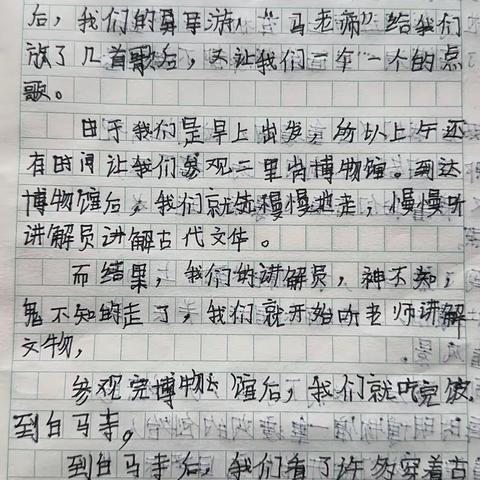 后，我们的导游“马老师”给我们
放了几首歌后，又让我们一个一个的点
歌。
由于我们是早上出发，所以上午还
有时间让我们参观二里岗博物馆。到达
博物馆后，我们就慢慢地走，慢慢听
讲解员讲解古代文化。
而结果，我们的讲解员，神不知，
鬼不知的走了，我们就开始听老师讲解
文物，
参观完博物馆后，我们就吃完饭
到白马寺，
到白马寺后，我们看了许多穿着古